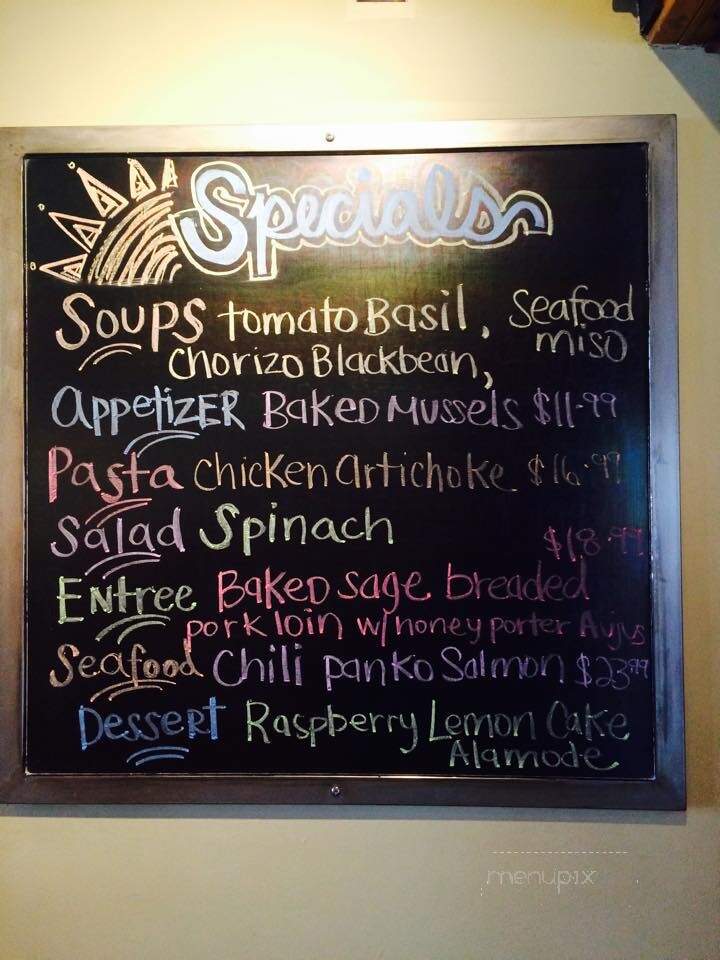 Specials
Soups tomato Basil, Seafood miso
Chorizo Blackbean,
Appetizer Baked Mussels $11.99
Pasta Chicken Artichoke $16.99
Salad Spinach
$18.99
Entree Baked sage breaded
pork loin w/honey porter Aujus
Seafood Chili panko Salmon $23.99
Dessert Raspberry Lemon Cake
Alamode
menupix